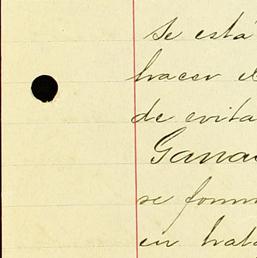 se está
hacer el
de evita
Ganad
se form
en trat